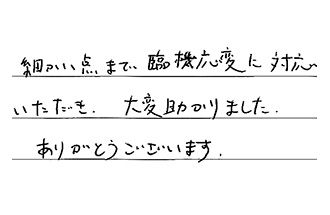 細かい点まで、臨機応変に対応
いただき、大変助かりました。
ありがとうございます。